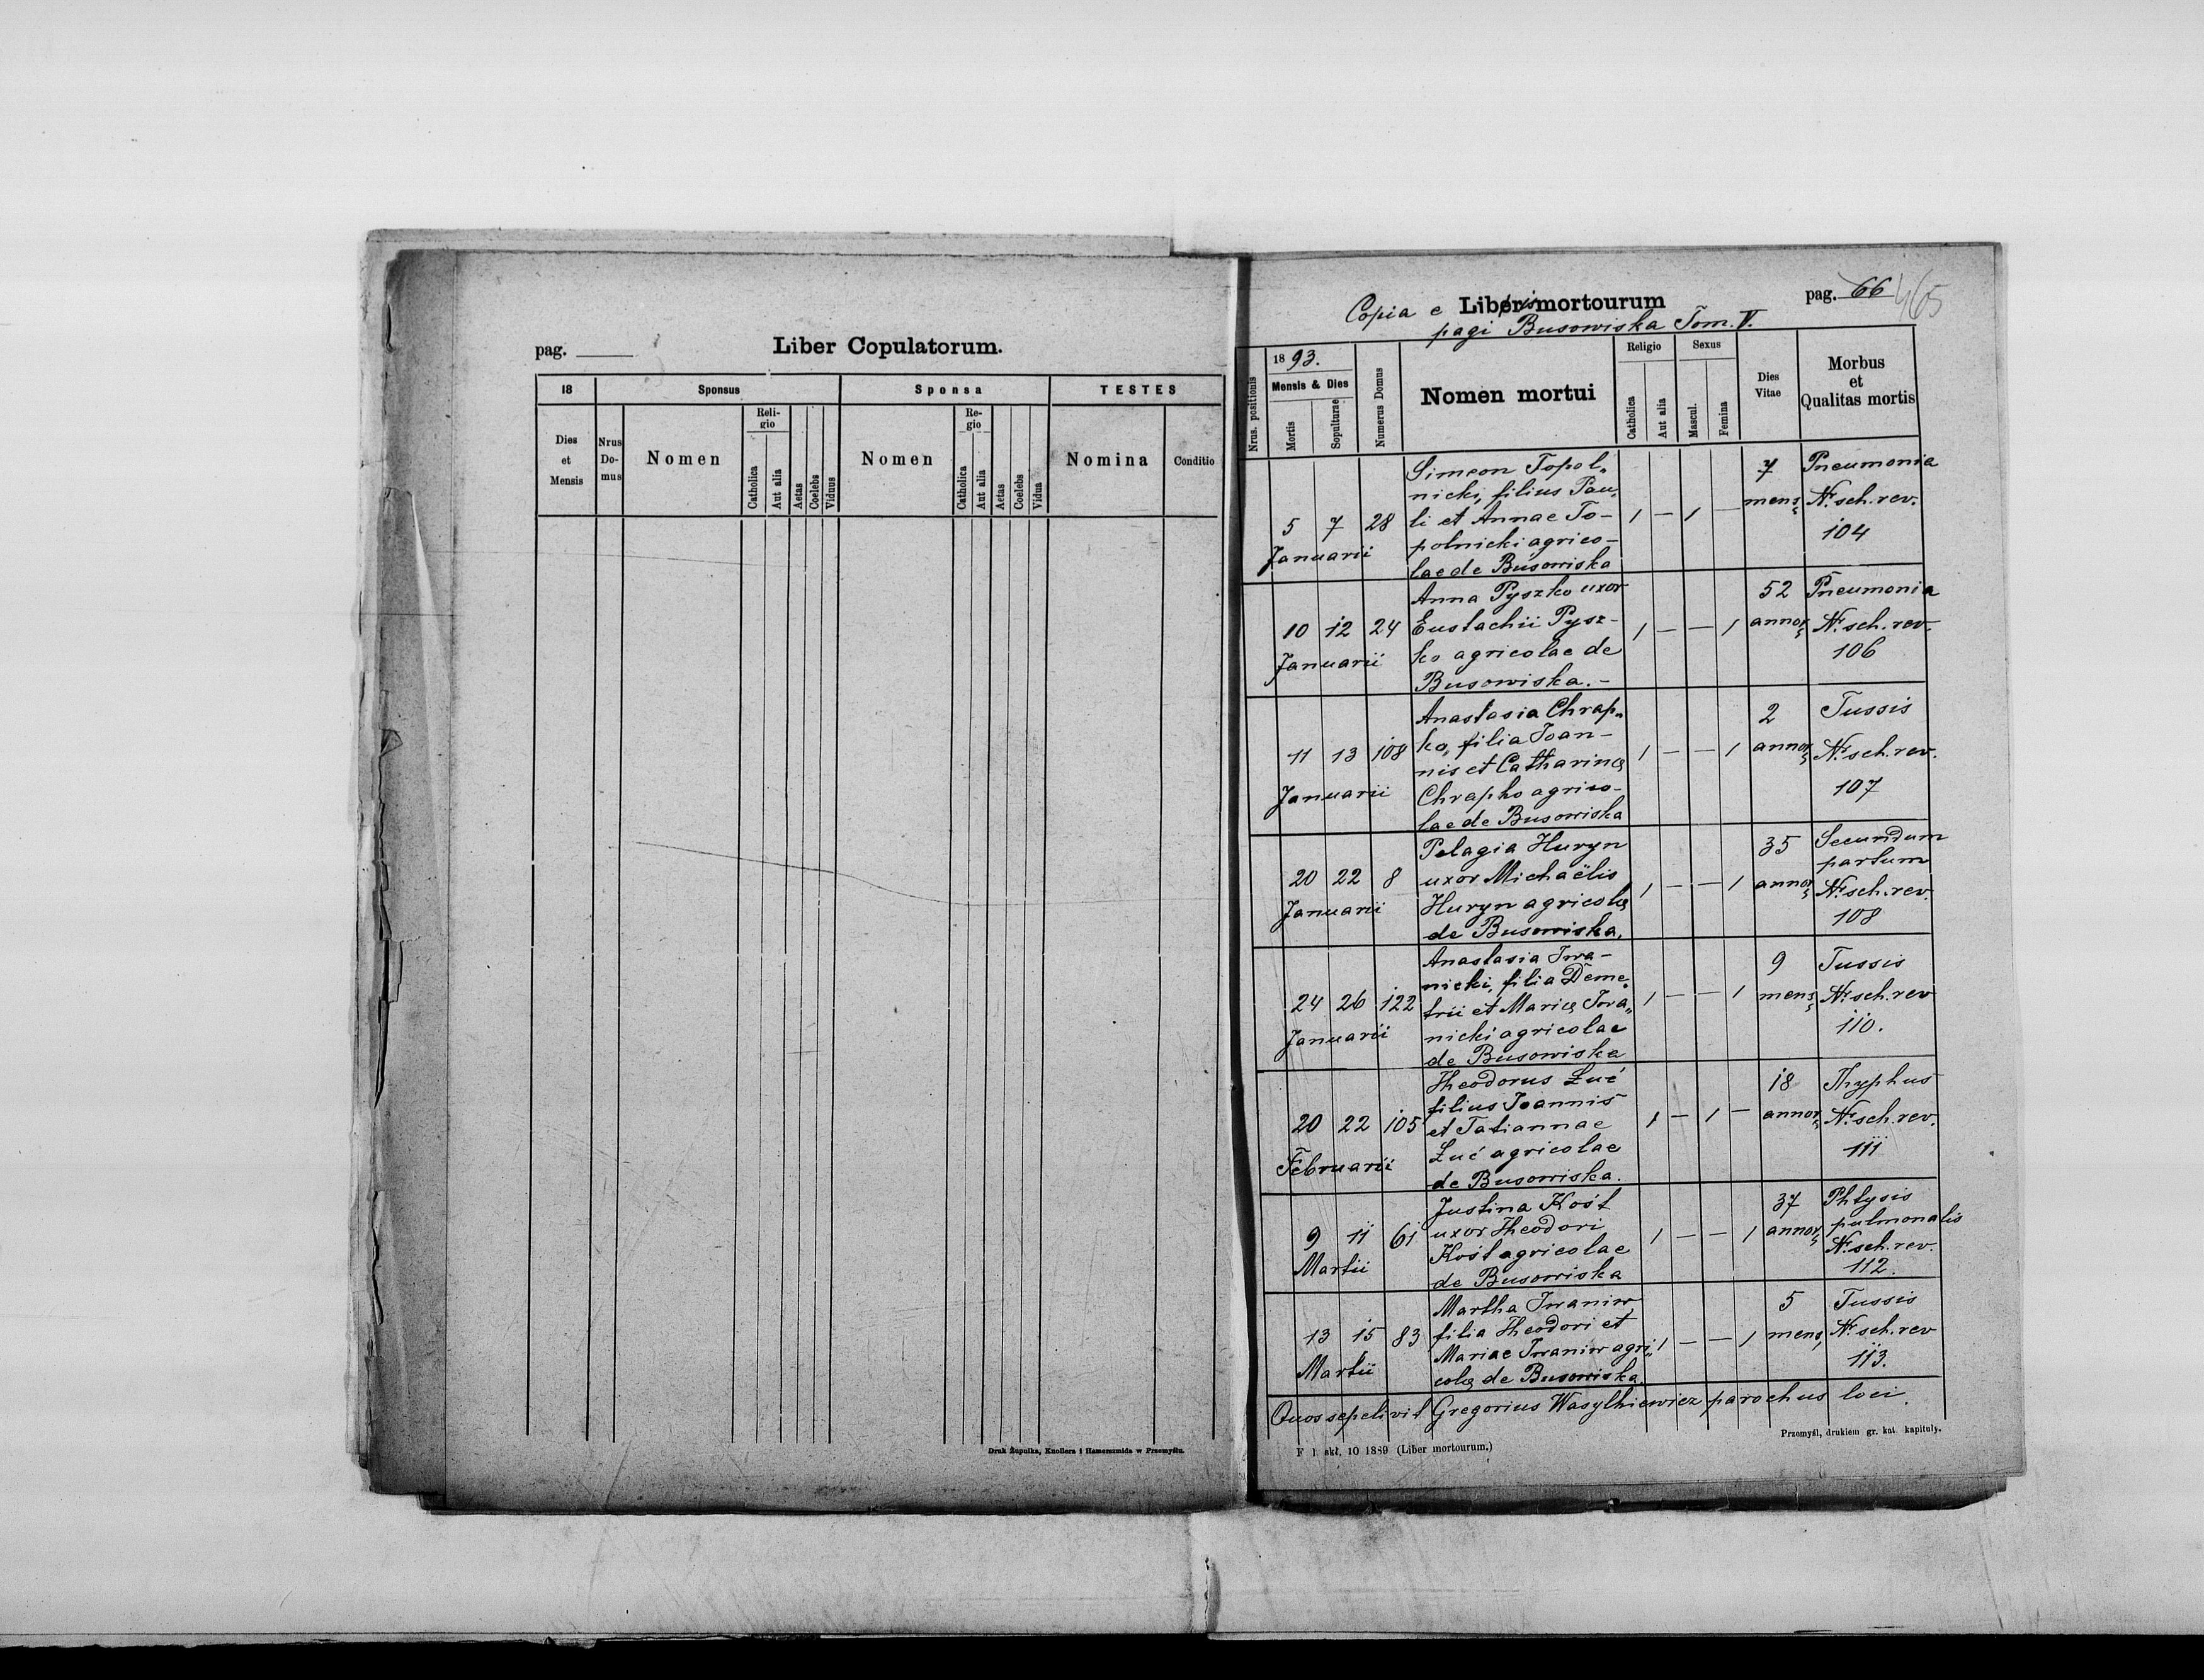 pag.
Liber Copulatorum.
18
Sponsus
Sponsa
TESTES
Dies et Mensis
Nrus Do- mus
Nomen
Reli- gio
Catholica
Aut alia
Aetas
Coelebs
Viduus
Nomen
Re- gio
Catholica
Aut alia
Aetas
Coelebs
Vidua
Nomina
Conditio
Druk Żupnika, Knollera i Hamerszmida w Przemyślu.
Copia e Libris mortourum
pag. 66
465
pagi Busowiska Tom. V.
Nrus. positionis
1893.
Mensis & Dies
Mortis
Sepulturae
Numerus Domus
Nomen mortui
Religio
Catholica
Aut alia
Sexus
Mascul.
Femina
Dies Vitae
Morbus
et
Qualitas mortis
5 7 28
Januarii
Simeon Topol„
nicki, filius Pau„
li et Annae To-
polnicki agrico-
lae de Busowiska
1 — 1 —
7
mens.
Pneumonia
Nr. sch. rev.
104
10 12 24
Januarii
Anna Pyszko uxor
Eustachii Pysz-
ko agricolae de
Busowiska.-
1 — — 1
52
annor.
Pneumonia
Nr. sch. rev.
106
11 13 108
Januarii
Anastasia Chrap„
ko, filia Joan-
nis et Catharinę
Chrapko agrico-
lae de Busowiska
1 — — 1
2
annor.
Tussis
Nr. sch. rev.
107
20 22 8
Januarii
Pelagia Huryn
uxor Michaëlis
Huryn agricolę
de Busowiska.
1 — — 1
35
annor.
Secundum
partum
Nr. sch. rev.
108
24 26 122
Januarii
Anastasia Iwa-
nicki, filia Deme„
trii et Marię Iwa„
nicki agricolae
de Busowiska
1 — — 1
9
mens.
Tussis
Nr. sch. rev
110.
20 22 105
Februarii
Theodorus Łuć
filius Joannis
et Tatiannae
Łuć agricolae
de Busowiska.
1 — 1 —
18
annor.
Thyphus
Nr. sch. rev.
111
9 11 61
Martii
Justina Kość
uxor Theodori
Kość agricolae
de Busowiska
1 — — 1
37
annor.
Phtysis
pulmonalis
Nr. sch. rev.
112.
13 15 83
Martii
Martha Iwaniw
filia Theodori et
Mariae Iwaniw agri„
colę de Busowiska.
1 — — 1
5
mens.
Tussis
Nr. sch. rev
113.
Quos sepelivit Gregorius Wasylkiewicz parochus loci.
F 1 skł. 10 1889 (Liber mortourum.)
Przemyśl, drukiem gr. kat. kapituły.